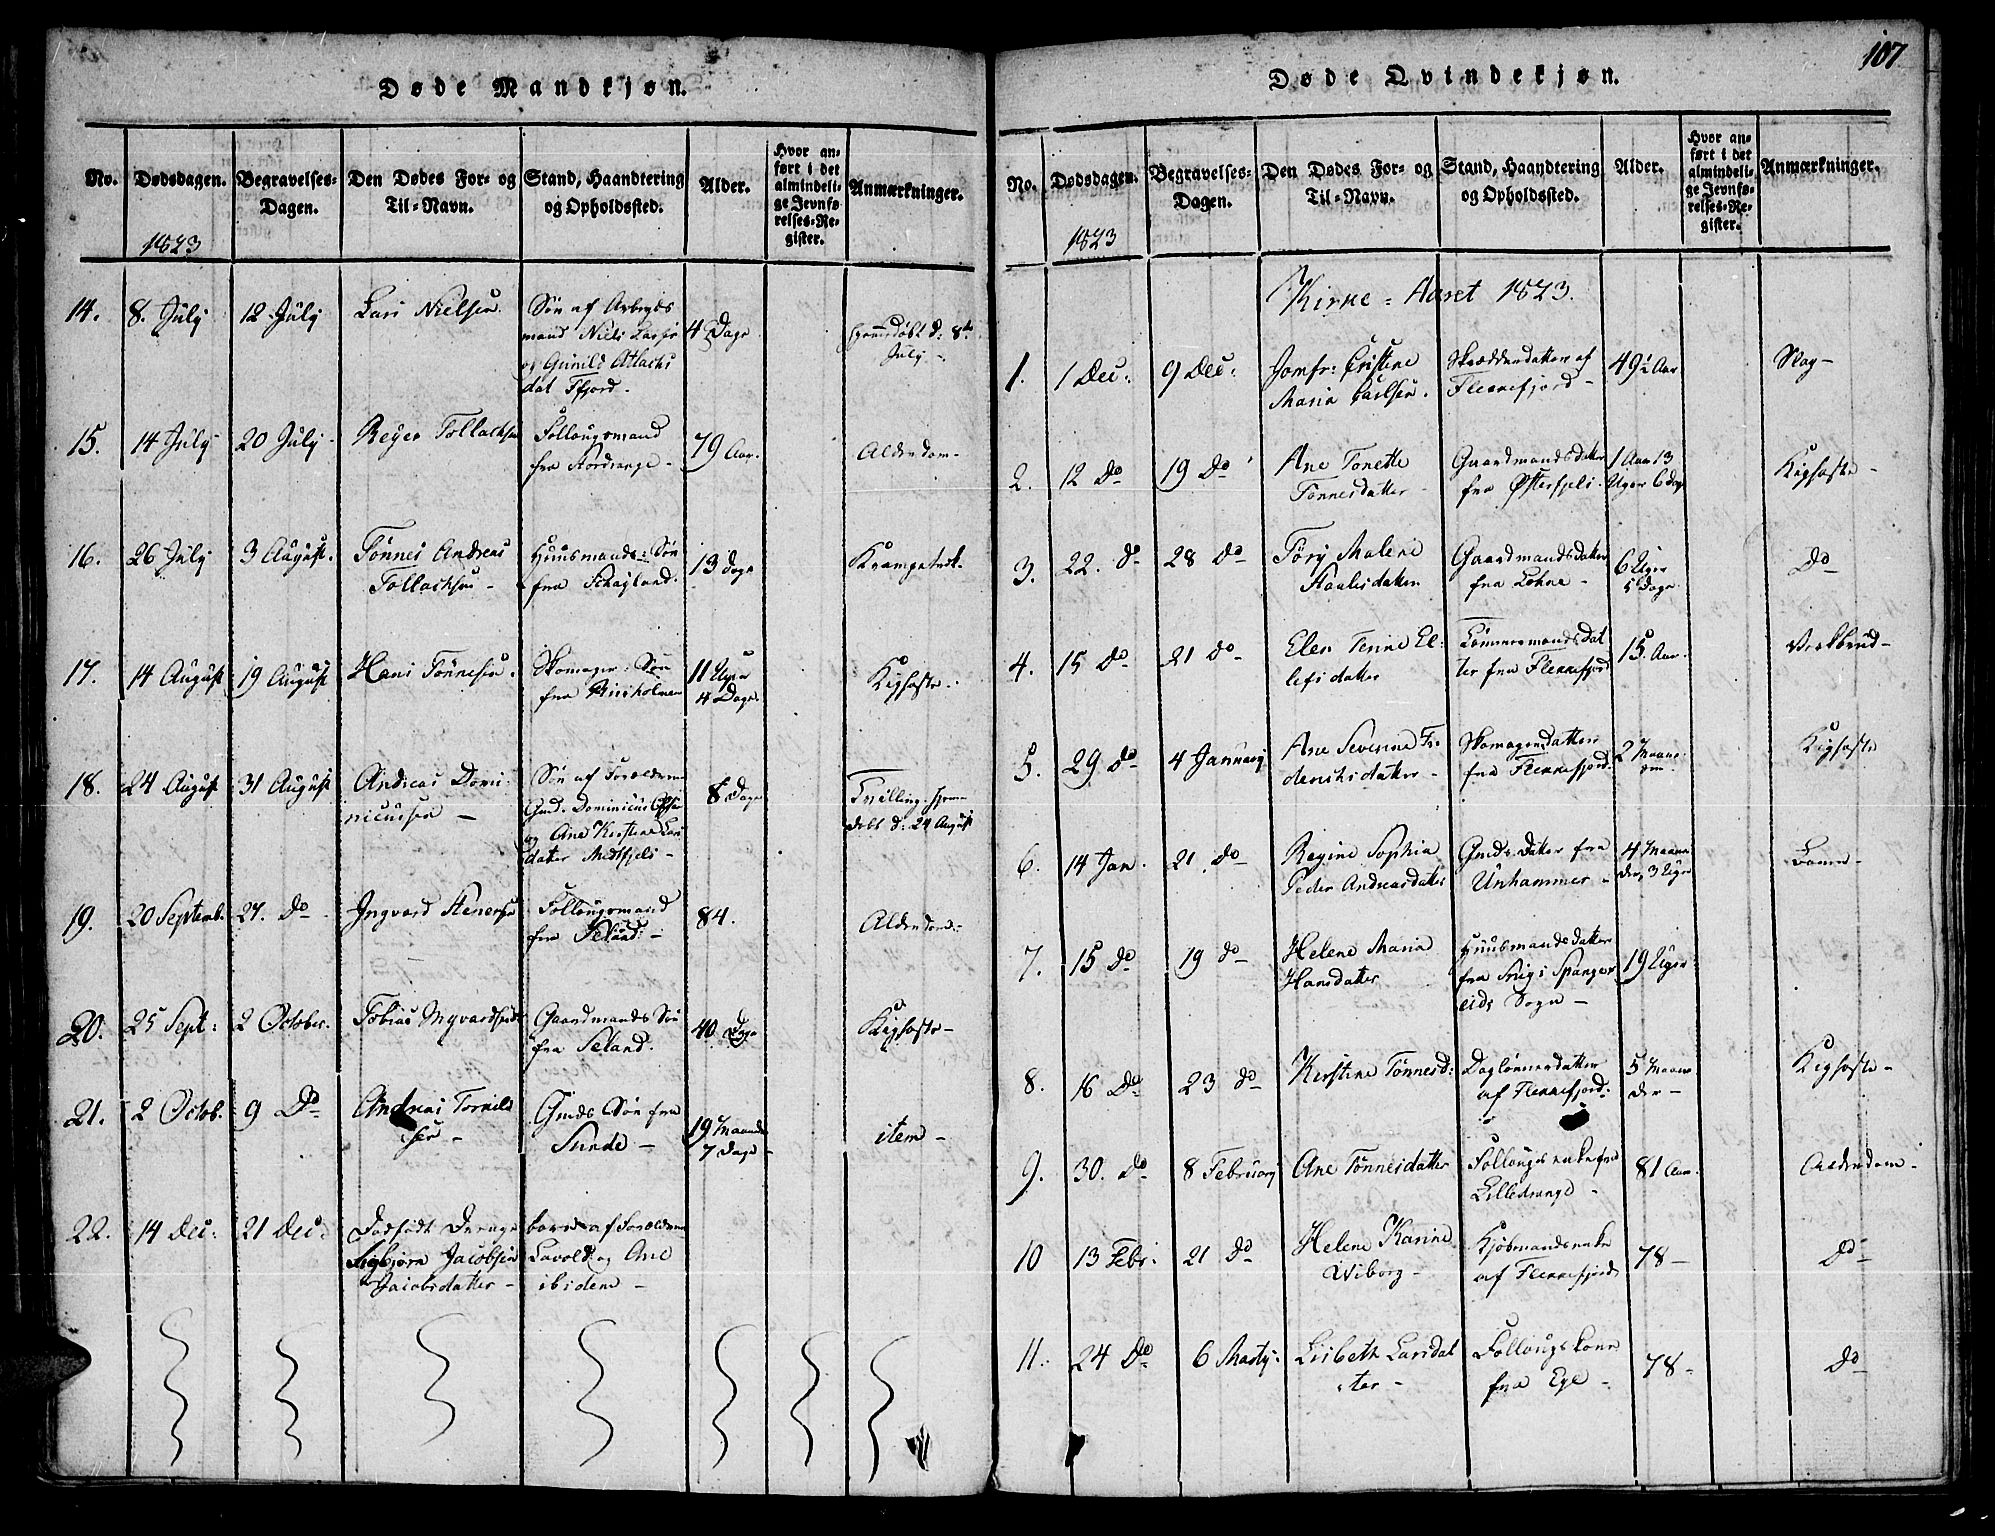 Døde Mandkjøn.
No. Dødsdagen. Begravelses-Dagen. Den Dødes For- og Til-Navn. Stand, Haandtering og Opholdssted. Alder. Hvor anført i det almindelige Jevnførelses-Register. Anmærkninger.
1823
14. 8. July 12 July Lars Nielsen Søn af Arbeyds
mand Niels
og Gunild
dat Ffjord. 4 Dage
d: 8de
July -
15. 14 July 20 July Reyer Tollachsen Follougsmand
fra Nordrange - 79 Aar. Alderdom -
16. 26 July 3 August. Tønnes Andreas
Tollachsen - Huusmands Søn
fra 13 dage Krampetræk
17. 14 August 19 August Hans Tønnesen. Skomager Søn
fra Birkholmen 11 Uger
4 Dage Kighoste
18. 24 August 31 August Andreas Domi-
nicussen - Søn af Forældrene
Gmd. Dominicus
og Ane Kirstine Lars
dater 8 Dage Tvilling hjem-
døbt d: 24 August
19. 20 Septemb. 27. Do Ingvard Stenersen Follougsmand
fra Seland - 84. Alderdom -
20. 25 Sept: 2 October. Tobias Ingvardsen Gaardmands Søn
fra Seland. 40 Dage Kighoste -
21. 2 Octob. 9 Do Andreas Tornild
sen - Gmds Søn fra
Sunde - 19 Maaneder
7 Dage - item -
22. 14 Dec: 21 Dec: Dødfødt Drenge barn af Forældrene
Sigbjørn Jacobsen Lavold og Ane
Jacobsdatter - ibidem -
107
Døde Qvindekjøn.
No. Dødsdagen. Begravelses-Dagen. Den Dødes For- og Til-Navn. Stand, Haandtering og Opholdssted. Alder. Hvor anført i det almindelige Jevnførelses-Register. Anmærkninger.
1823
Kirke-Aaret 1823.
1. 1 Dec: 9 Dec: Jomfr: Cristine
Maria Carlsen. Skrædderdatter af
Flekkefjord - 49½ Aar Slag -
2. 12 Do 19 Do Ane Tonette
Tønnesdatter - Gaardmandsdatter
fra Østerfjeli. 1 Aar 13
Uger 6 dage Kighoste -
3. 22. do 28 do Tørj Malene
Staalesdatter Gaardmandsdatter
fra Lohne - 6 Uger
5 Dage Do
4. 15 Do 21 Do Elen Tenne El-
lefsdatter Tømmermandsdat
ter fra Flekkefjord 15. Aar.
5. 29 do 4 Januarj Ane Severine Fre
derichsdatter - Skomagerdatter
fra Flekkefjord 2 Maane-
Kighoste
6. 14 Jan. 21. do Regine Sophia
Peder Andreasdatter Gmds. Datter fra
Unhammer - 4 Maane-
der 3 Uger
7. 15 do 19 do Helene Maria
Hansdatter Huusmandsdatter
fra Spanger
eids Sogn - 19 Uger
8. 16 Do 23 do Kirstine Tønnesd: Daglønnerdatter
af Flekkefjord 5 Maane
der - Kighoste -
9. 30. Do 8 Februarj Ane Tønnesdatter Follougs enke fra
Lilledrange - 81 Aar. Alderdom -
10 13 Febr. 21 Do Helene Karine
Wiborg - Kjøbmandsenke
af Flekkefjord 78 - Do
11. 24 Do 6 Marty: Lisbeth Larsdat
ter - Follougs kone
fra Ege - 78 - Do